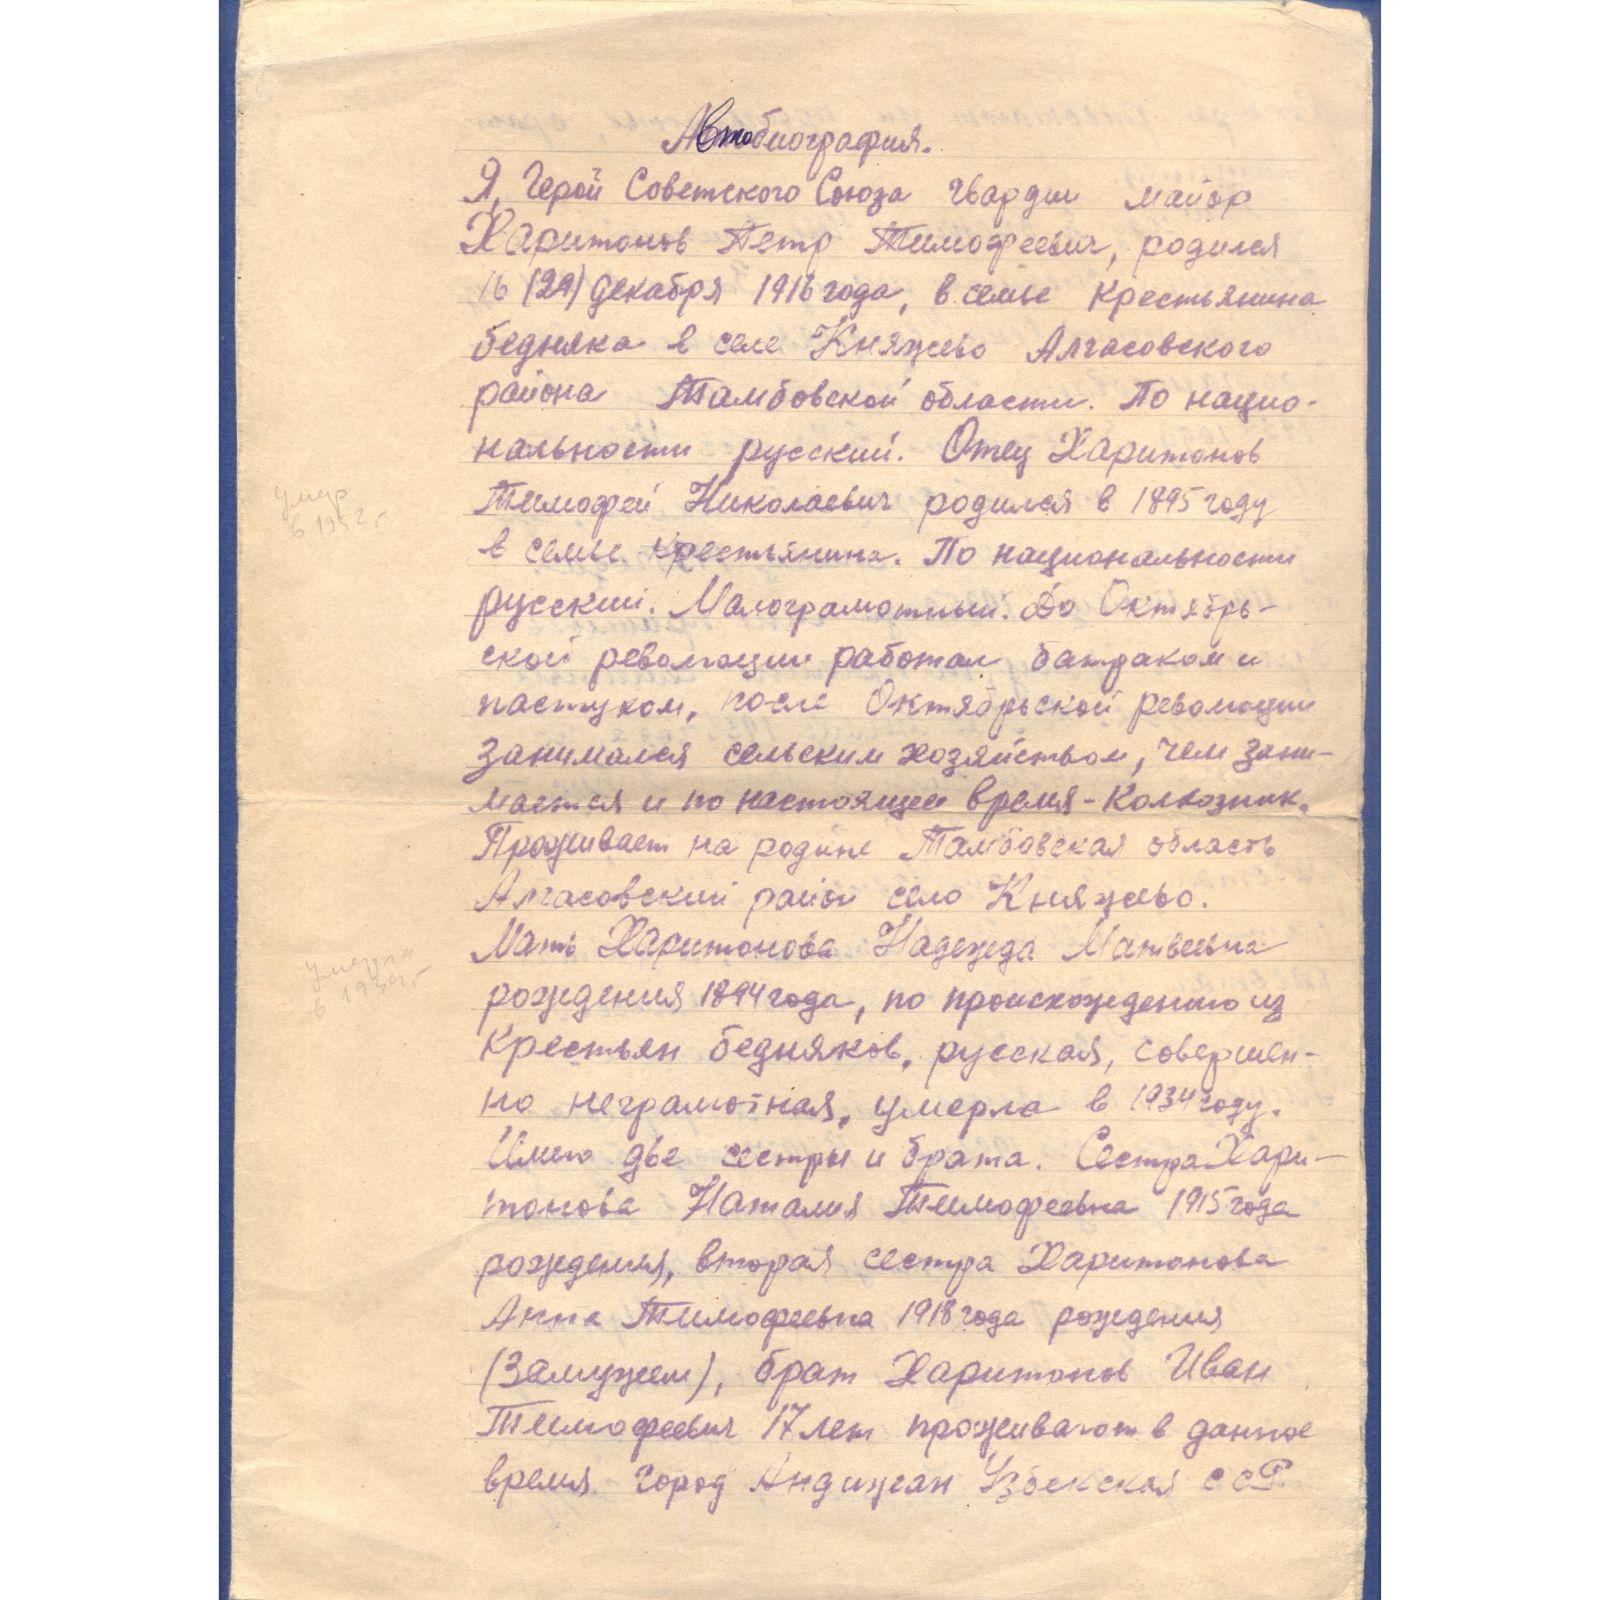 Автобиография.
Я, Герой Советского Союза гвардии майор
Харитонов Петр Тимофеевич, родился
16 (29) декабря 1916 года, в семье крестьянина
бедняка в селе Княжево Алгасовского
района Тамбовской области. По нацио-
нальности русский. Отец Харитонов
Тимофей Николаевич родился в 1895 году
умер
в 1952 г.
в семье крестьянина. По национальности
русский. Малограмотный. До Октябрь-
ской революции работал батраком и
пастухом, после Октябрьской революции
занимался сельским хозяйством, чем зани-
мается и по настоящее время - Колхозник.
Проживает на родине Тамбовская область
Алгасовский район село Княжево.
Мать Харитонова Надежда Матвеевна
умерла
в 1934 г.
рождения 1894 года, по происхождению из
крестьян бедняков, русская, совершен-
но неграмотная, умерла в 1934 году.
Имею две сестры и брата. Сестра Хари-
тонова Наталия Тимофеевна 1915 года
рождения, вторая сестра Харитонова
Анна Тимофеевна 1918 года рождения
(Замужем), брат Харитонов Иван
Тимофеевич 17 лет проживают в данное
время город Андижан Узбекская ССР.